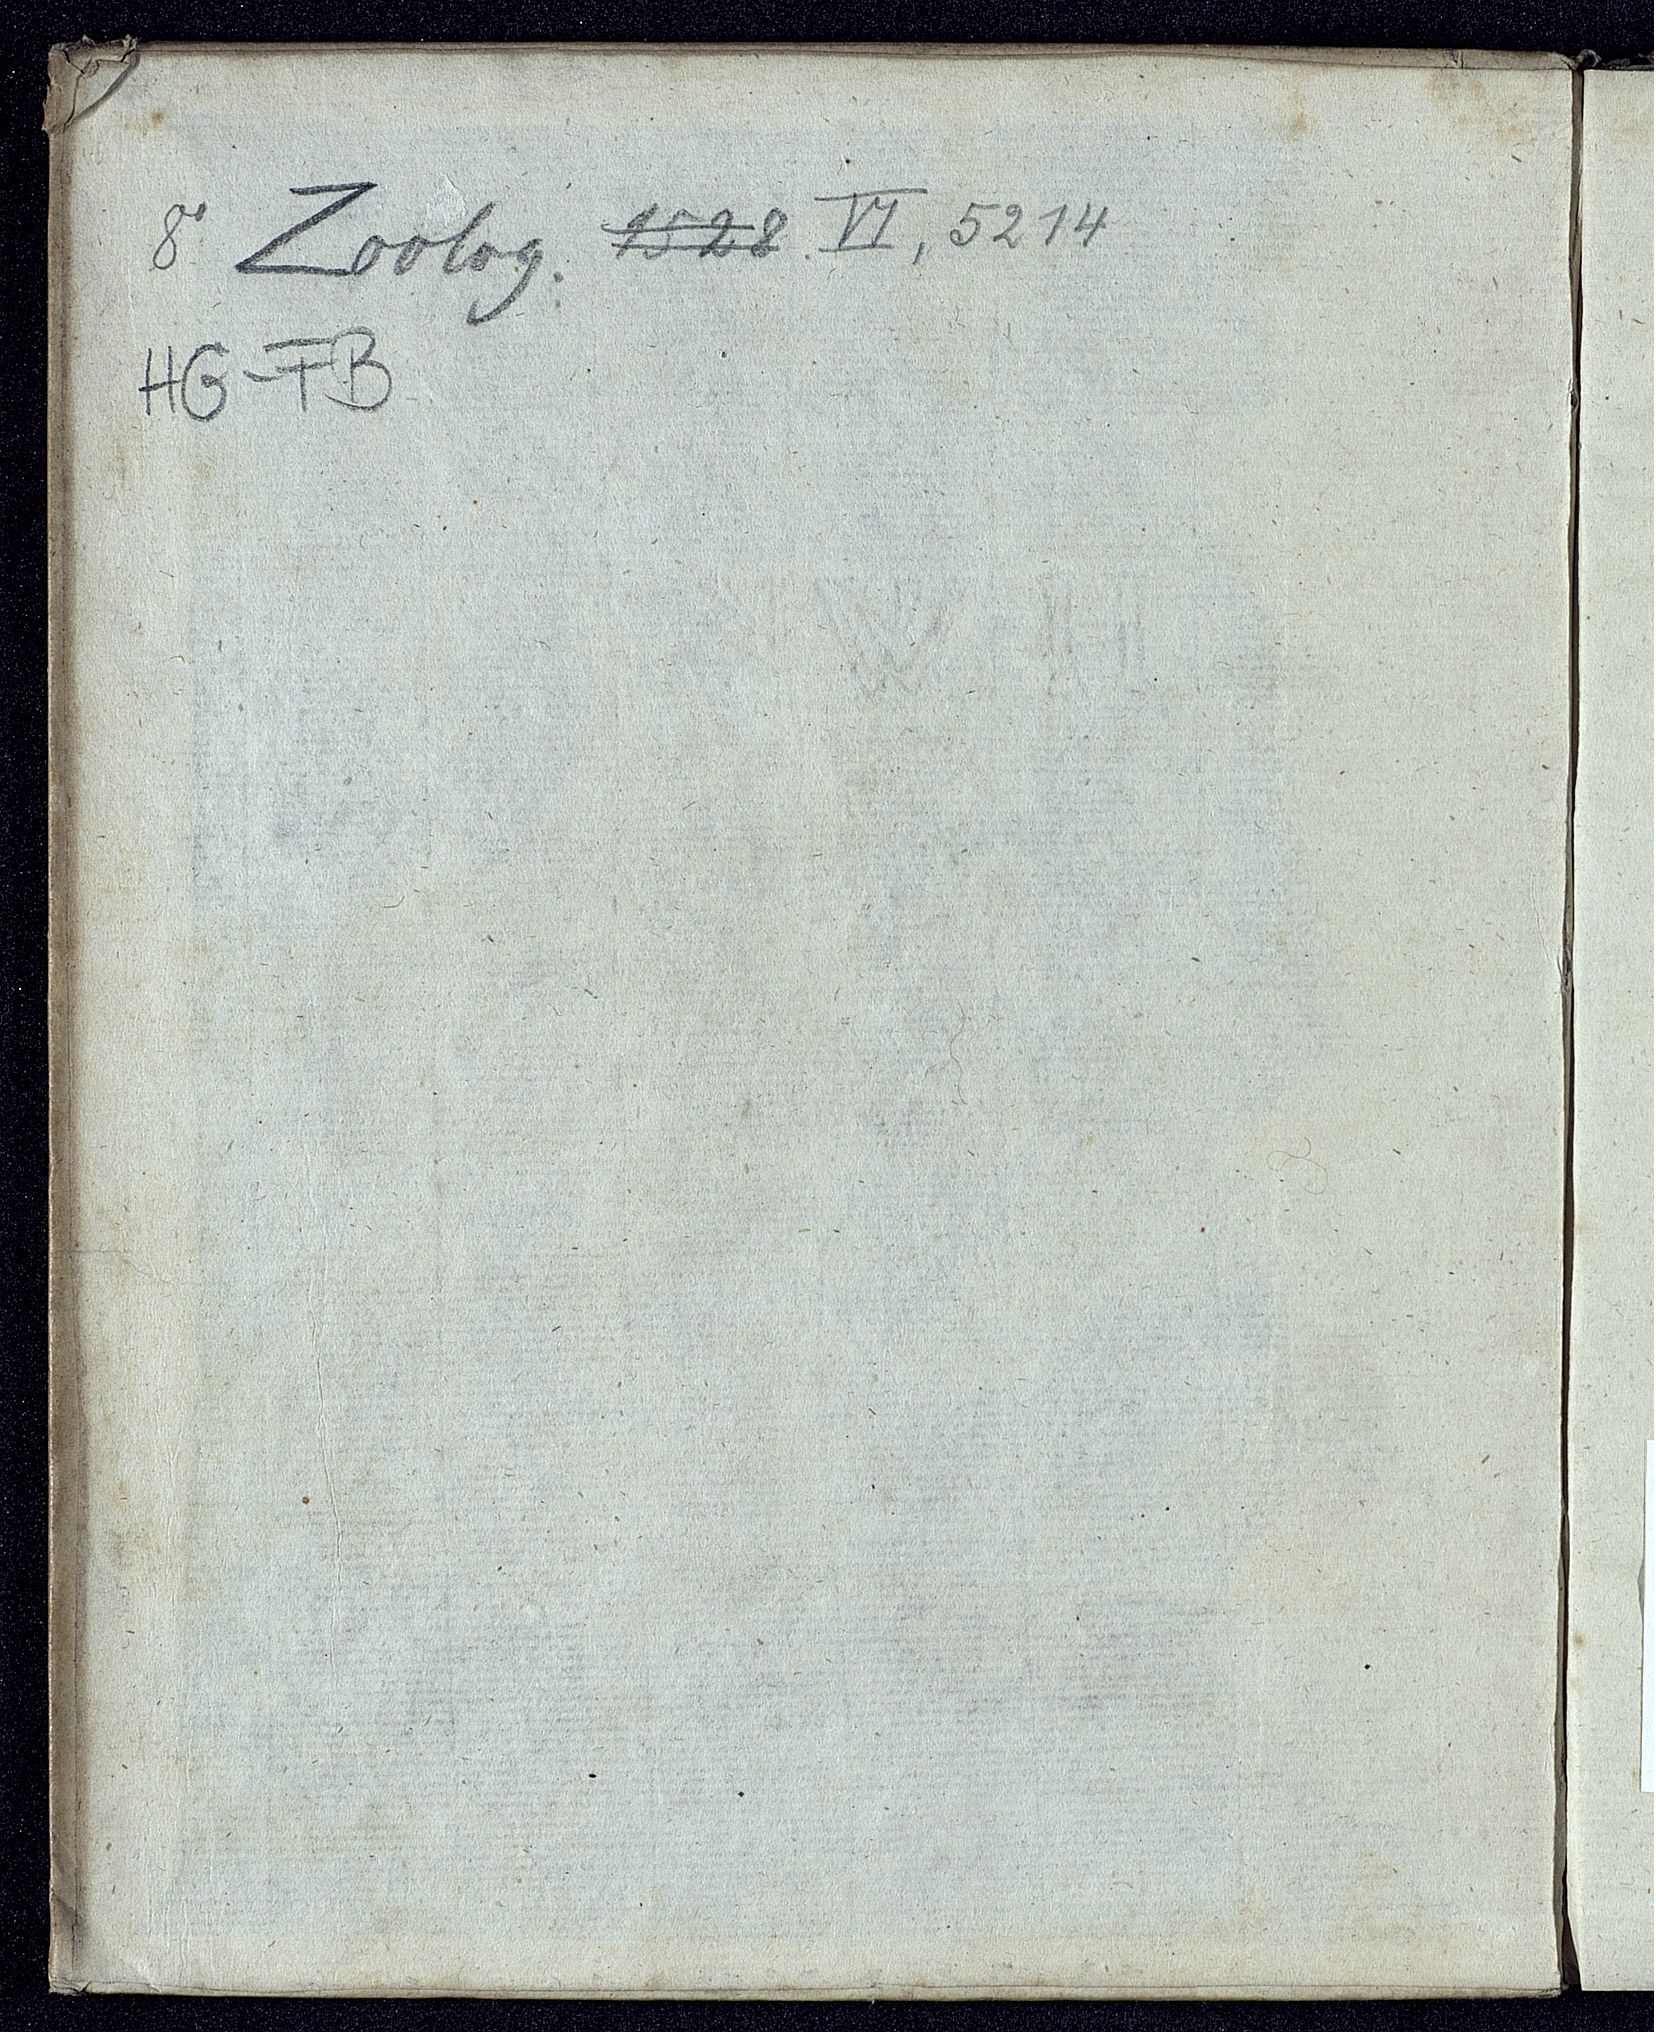 8° Zoolog. 1528. VI, 5214
HG-FB